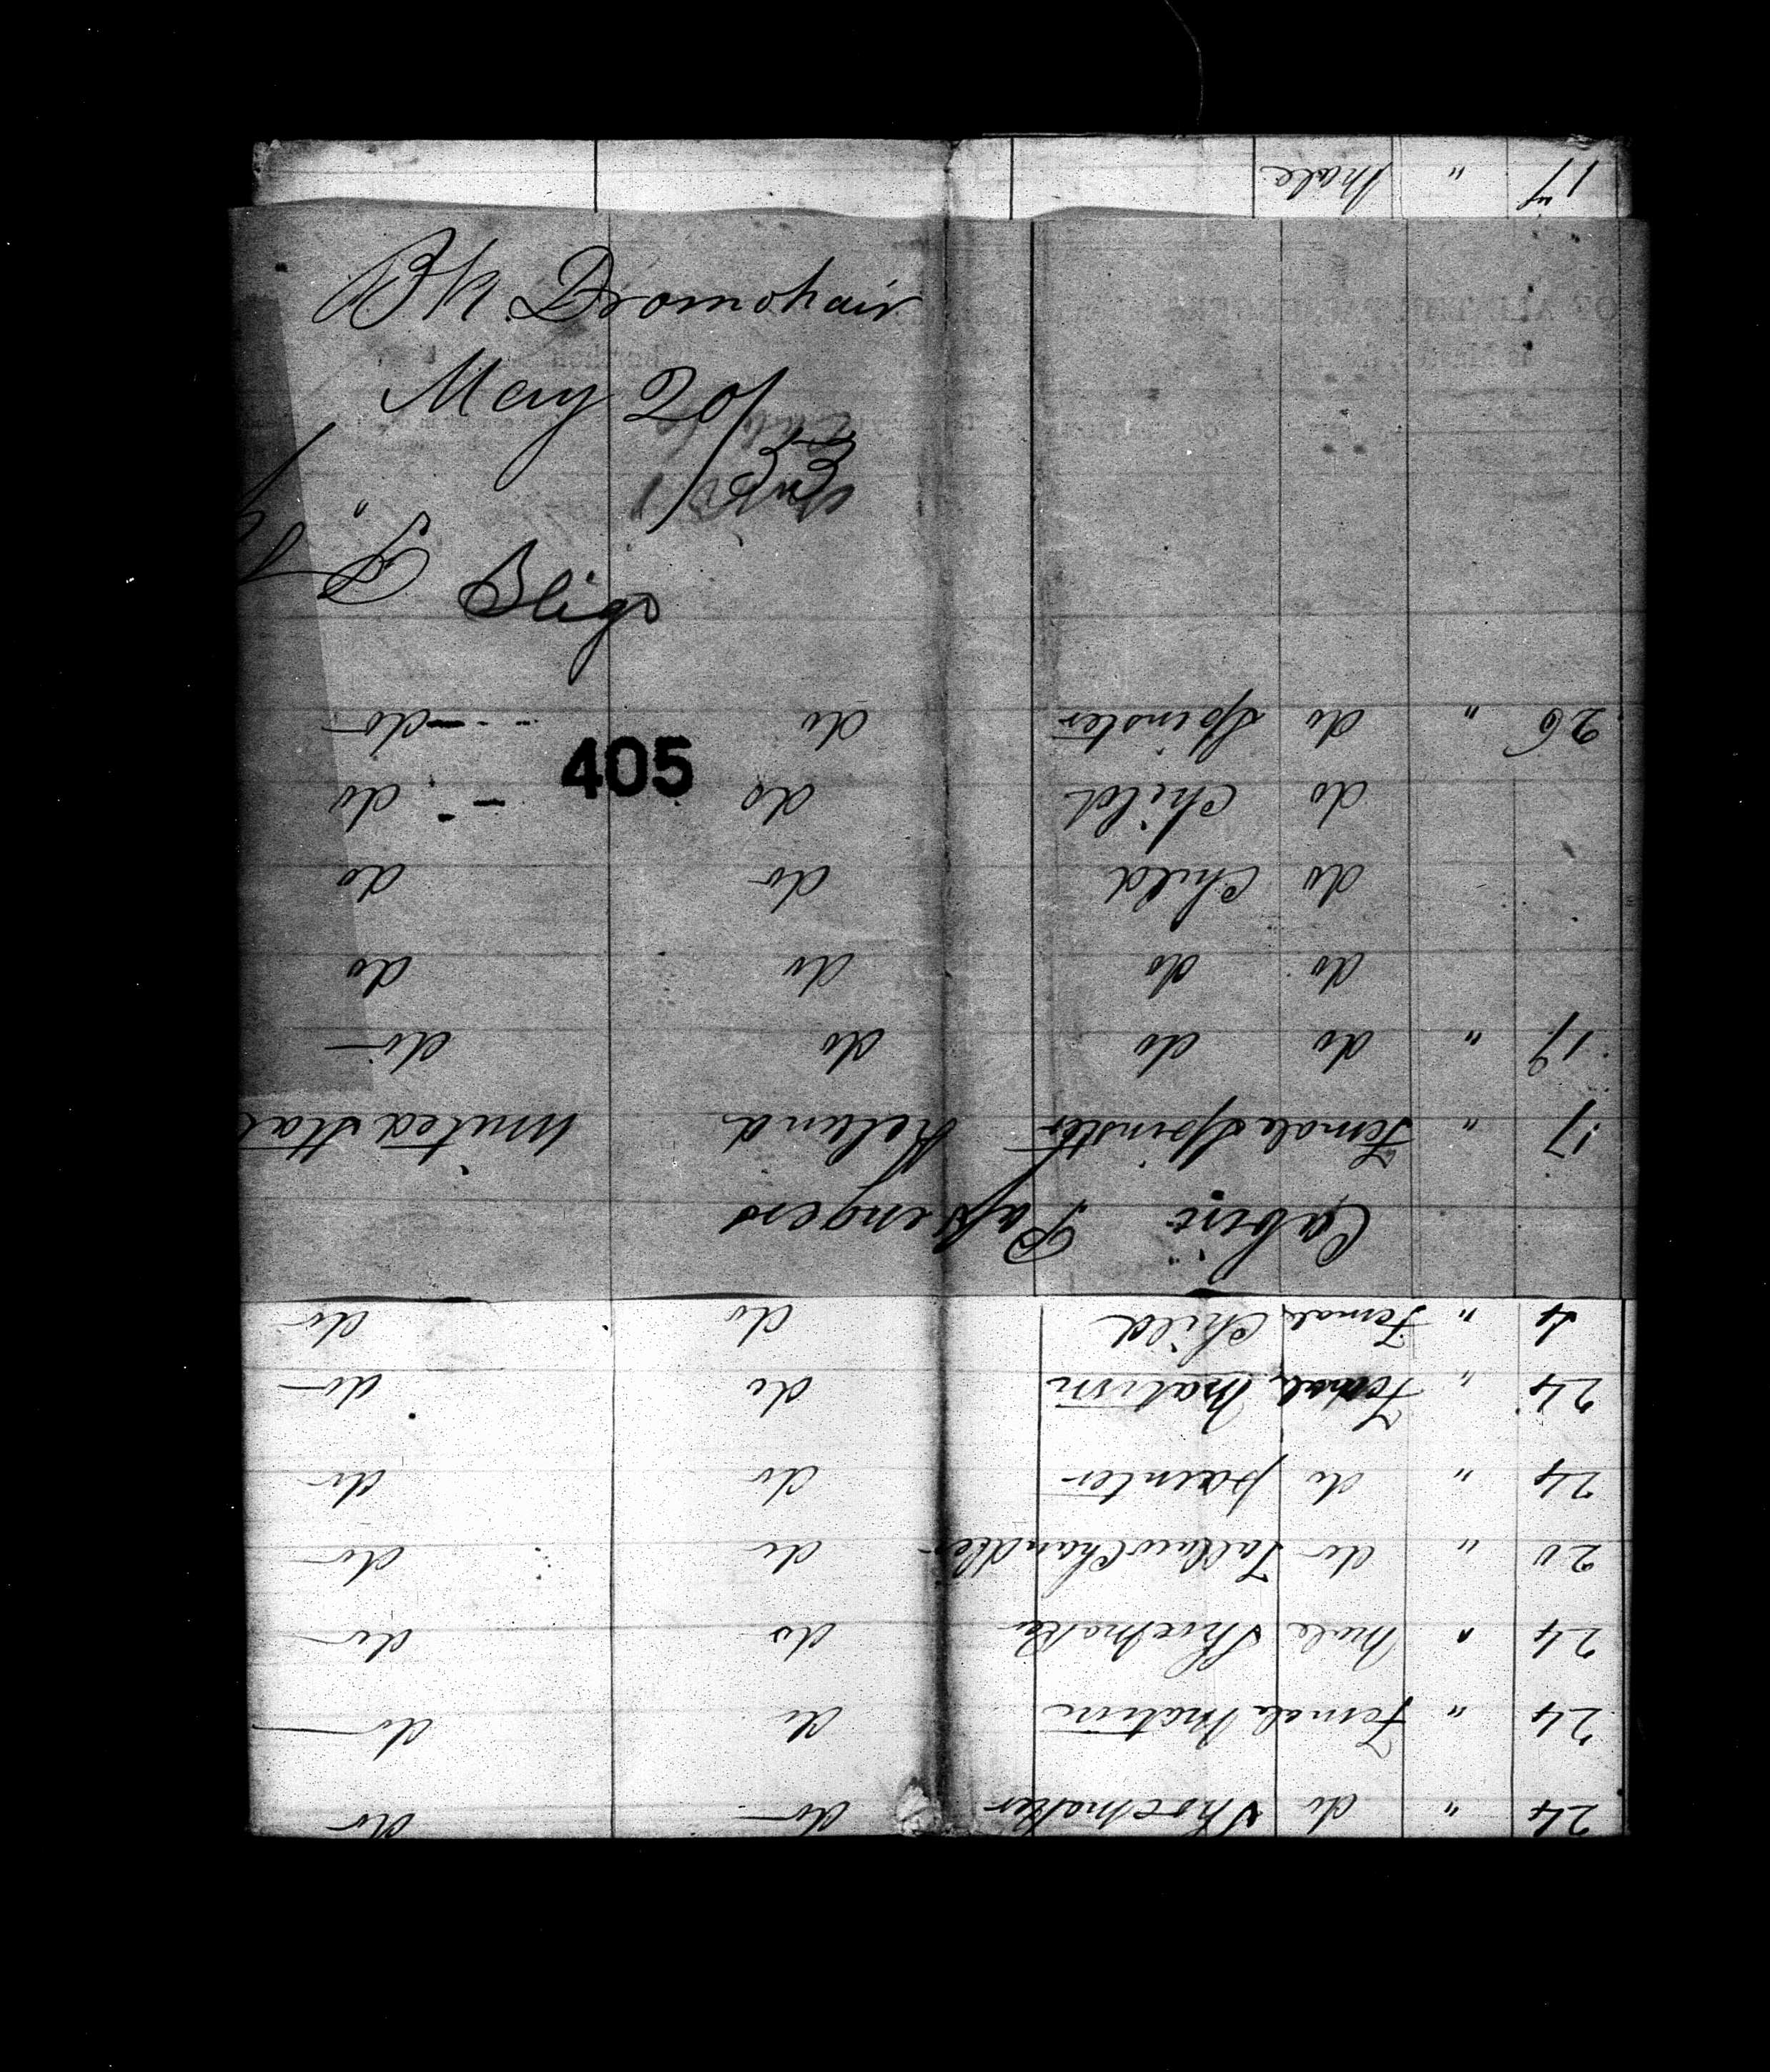 Bk. Dromahair
May 20/
53
Sligo
405
24 " do Shoemaker do do
24 " Female Matron do do
24 " Male Shoemaker do do
20 " do Tallow Chandler do do
24 " do painter do do
24 " Female Matron do do
4 " Female Child do do
Cabin Passengers
17 " Female Spinster Ireland United Stat
19 " do do do do
do do do do
do Child do do
do Child do do
26 " do Spinster do do
17 " Male